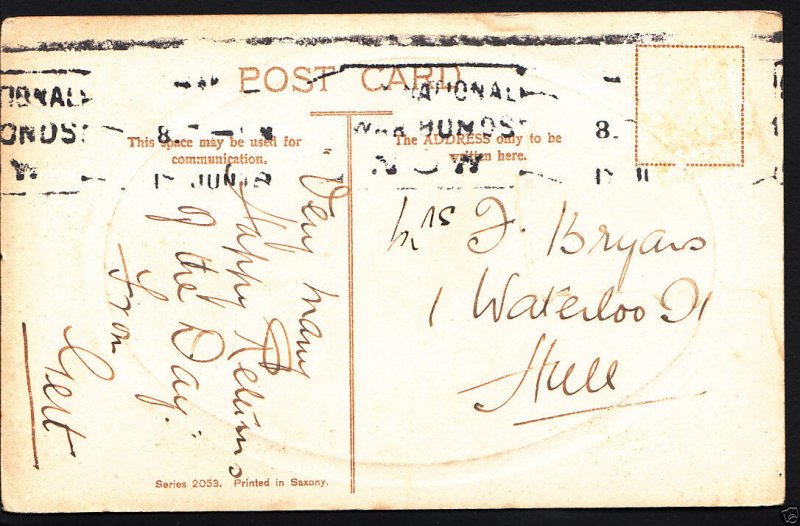 POST CARD
NATIONAL
WAR BONDS
NOW
8.
17 JUN
This space may be used for
communication.
The ADDRESS only to be
written here.
"Very many
Happy Returns
of the Day."
From
Gert
Mrs F. Bryars
1 Waterloo St
Hull
Series 2053. Printed in Saxony.